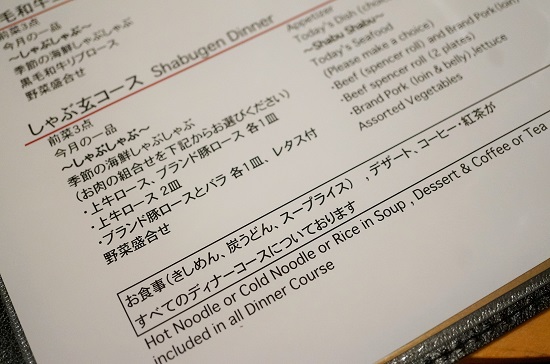 毛和牛
前菜3点
今月の一品
～しゃぶしゃぶ～
季節の海鮮しゃぶしゃぶ
黒毛和牛リブロース
野菜盛合せ
しゃぶ玄コース Shabugen Dinner
前菜3点
今月の一品
～しゃぶしゃぶ～
季節の海鮮しゃぶしゃぶ
(お肉の組合せを下記からお選びください)
・上牛ロース、ブランド豚ロース 各1皿
・上牛ロース 2皿
・ブランド豚ロースとバラ 各1皿、レタス付
野菜盛合せ
Appetizer
Today's Dish (choice
～Shabu Shabu～
Today's Seafood
(Please make a choice)
・Beef (spencer roll) and Brand Pork(loin)
・Beef (spencer roll) (2 plates)
・Brand Pork (loin & belly),lettuce
Assorted Vegetables
お食事(きしめん、炭うどん、スープライス)，デザート、コーヒー・紅茶が
すべてのディナーコースについております
Hot Noodle or Cold Noodle or Rice in Soup , Dessert & Coffee or Tea
included in all Dinner Course